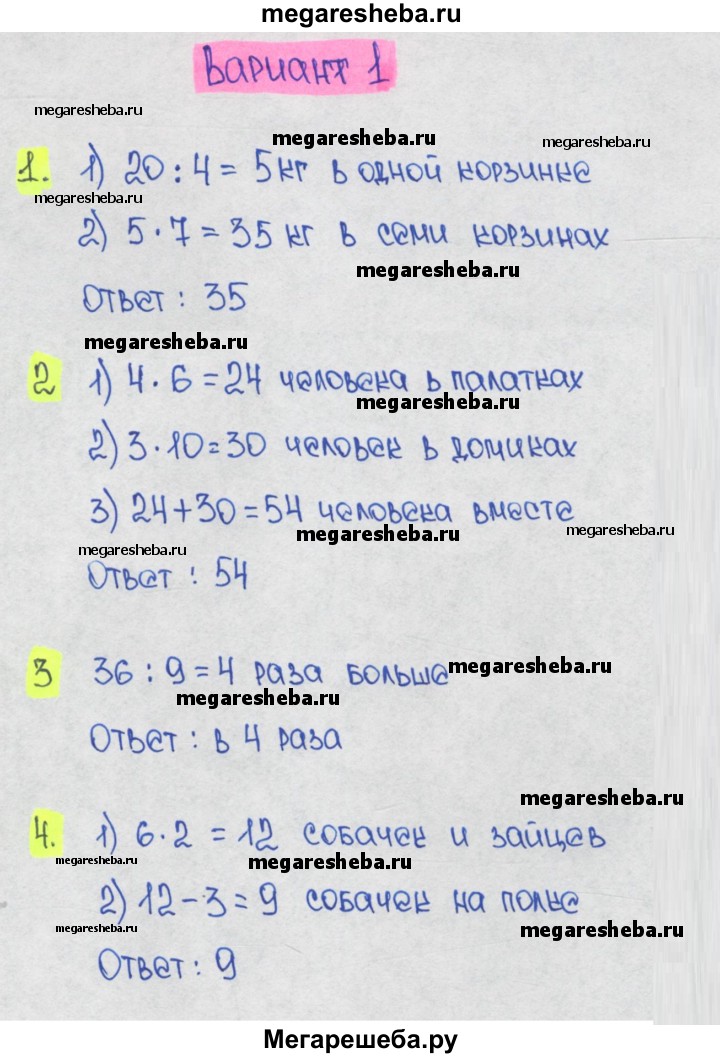 megaresheba.ru
Вариант 1
megaresheba.ru
megaresheba.ru
megaresheba.ru
1. 1) 20 : 4 = 5 кг в одной корзинке
megaresheba.ru
2) 5 · 7 = 35 кг в семи корзинах
megaresheba.ru
Ответ : 35
megaresheba.ru
2 1) 4 · 6 = 24 человека в палатках
megaresheba.ru
2) 3 · 10 = 30 человек в домиках
3) 24 + 30 = 54 человека вместе
megaresheba.ru
megaresheba.ru
megaresheba.ru
Ответ : 54
3 36 : 9 = 4 раза больше
megaresheba.ru
megaresheba.ru
Ответ : в 4 раза
megaresheba.ru
4. 1) 6 · 2 = 12 собачек и зайцев
megaresheba.ru
megaresheba.ru
2) 12 - 3 = 9 собачек на полке
megaresheba.ru
megaresheba.ru
Ответ : 9
Мегарешеба.ру